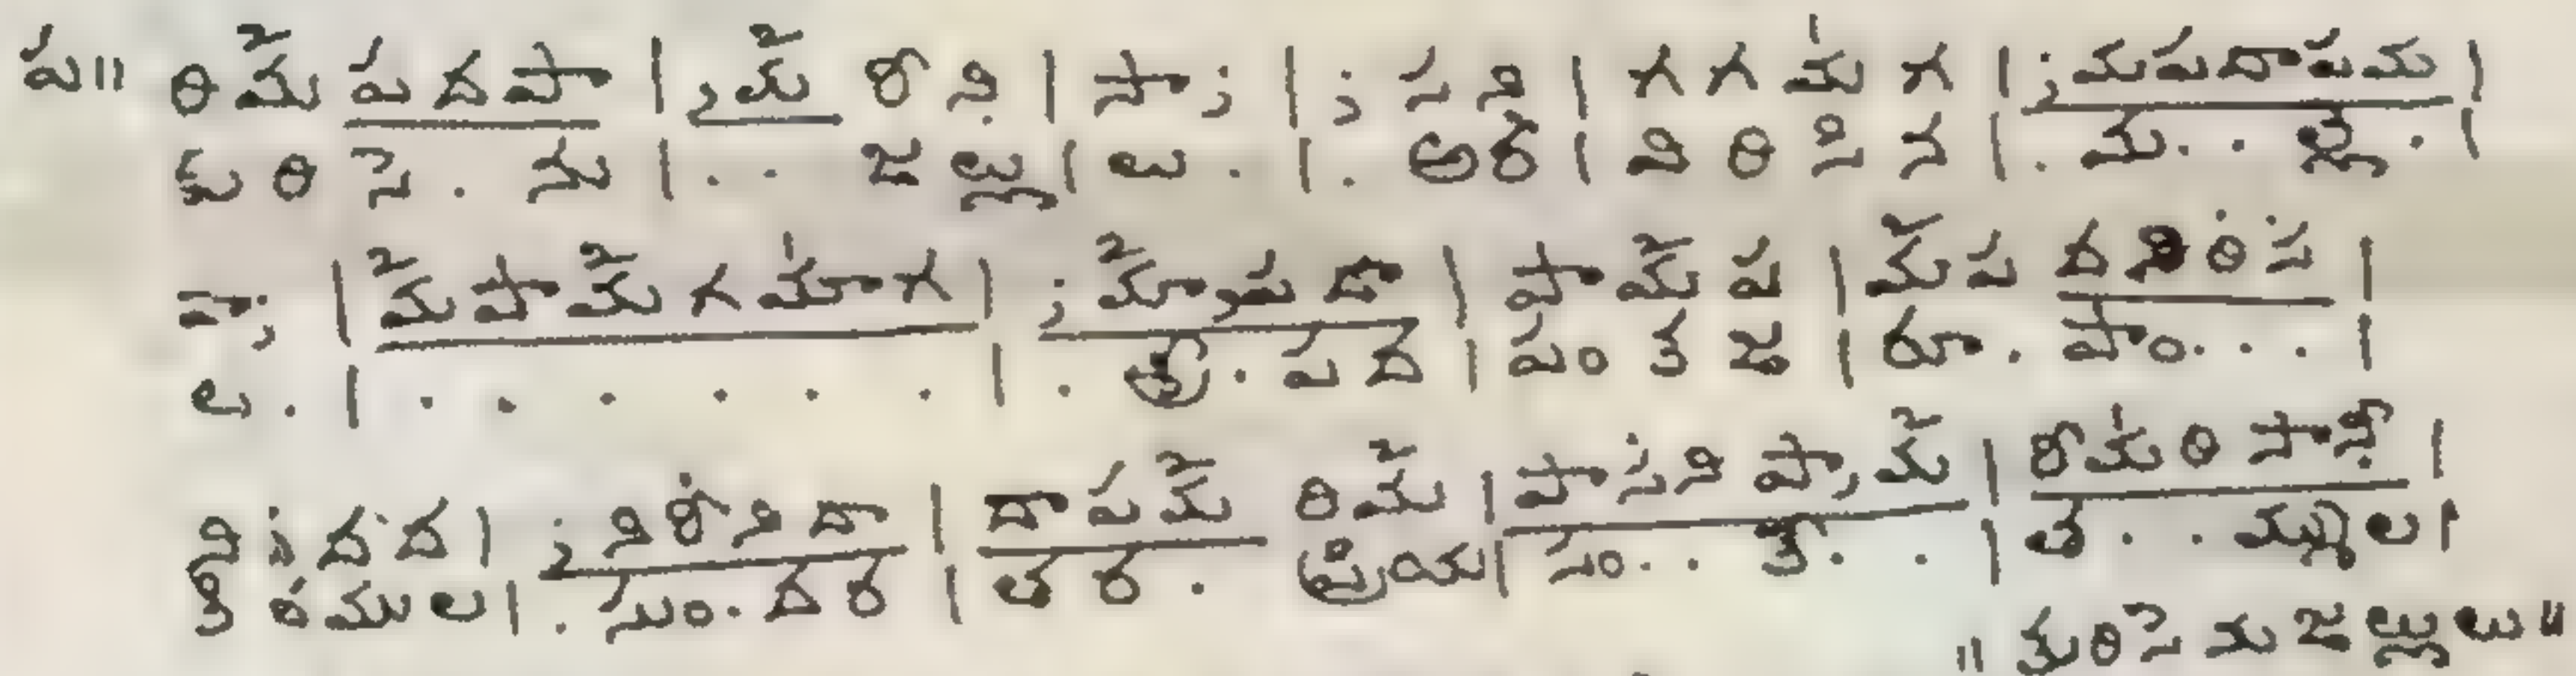 ప॥ రిమ౾ పదపా | ,మ౾ రీని | సా; | ; సని | గగమగ | ;మపదాపమ |
కురిసె . ను | . . జల్లు | లు . | . అర | విరిసిన | . మ . . ల్లె . |
నా; | మపామగమాగ | ;మా,పదా | పామప | మప దనిరిస |
ల . | . . . . . . | . త్రీ . పద | పంకజ | రూ . పాం . . . |
నిసదద | ;నిరీనిదా | దాపమ రిమ | పాసనిపా,మ | రీమరిసానీ |
కితముల | . సుం . దర | తర . ప్రియ | సం . . కే . . | త . . మ్ముల |
॥ కురిసెను జల్లులు ॥